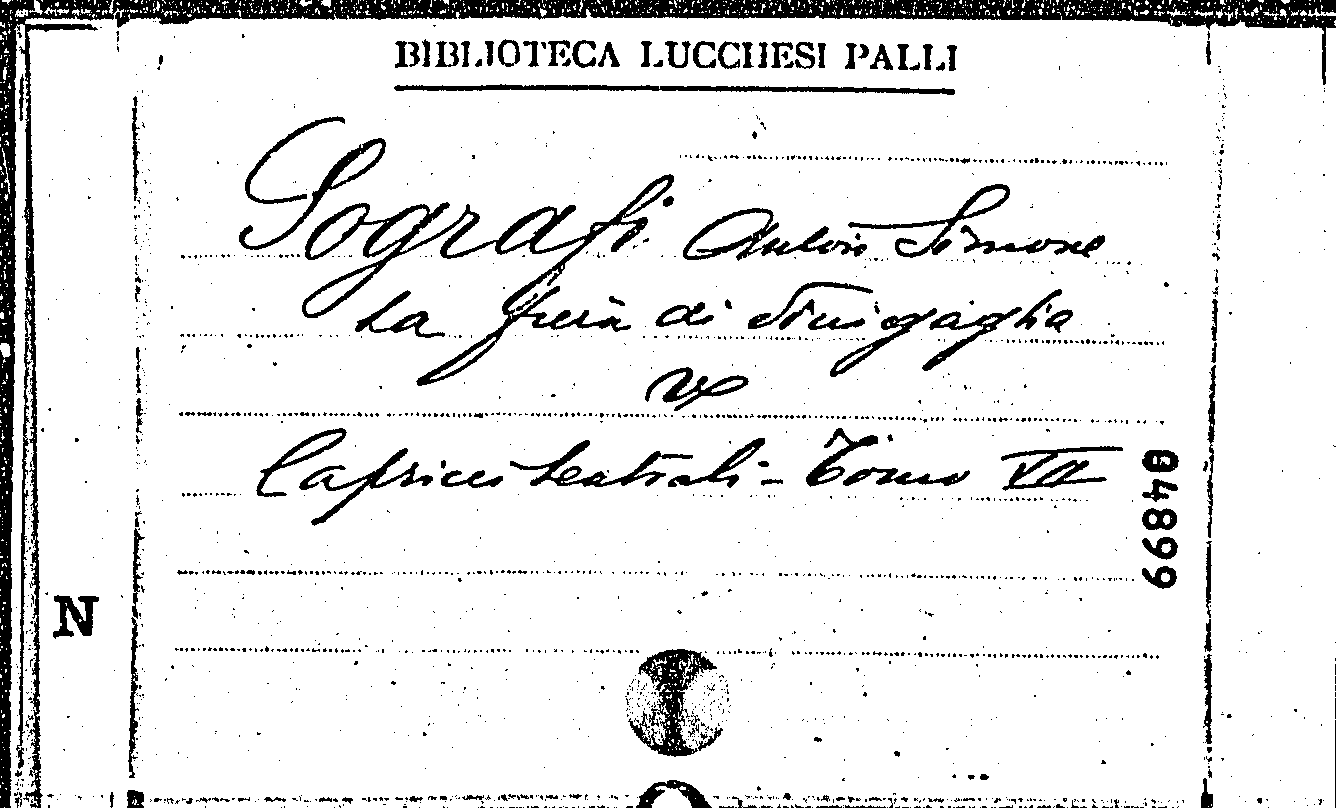 BIBLIOTECA LUCCHESI PALLI
Sografi Anton Simone
La fiera di Sinigaglia
in
Capricci teatrali - Tomo VII
04899
N